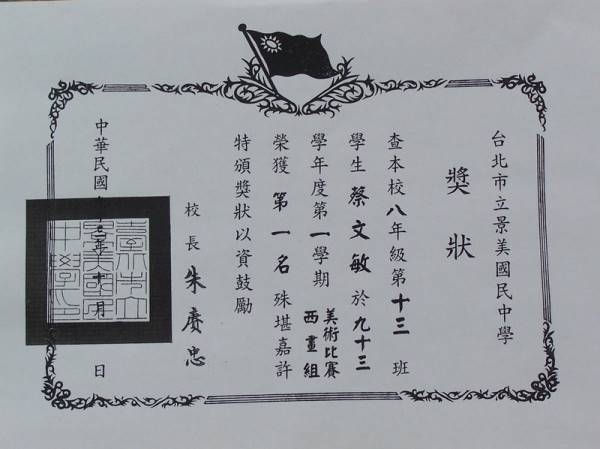 台北市立景美國民中學
獎狀
查本校八年級第十三班
學生蔡文敏於九十三
學年度第一學期美術比賽西畫組
榮獲第一名殊堪嘉許
特頒獎狀以資鼓勵
校長朱賡忠
中華民國年十一月日